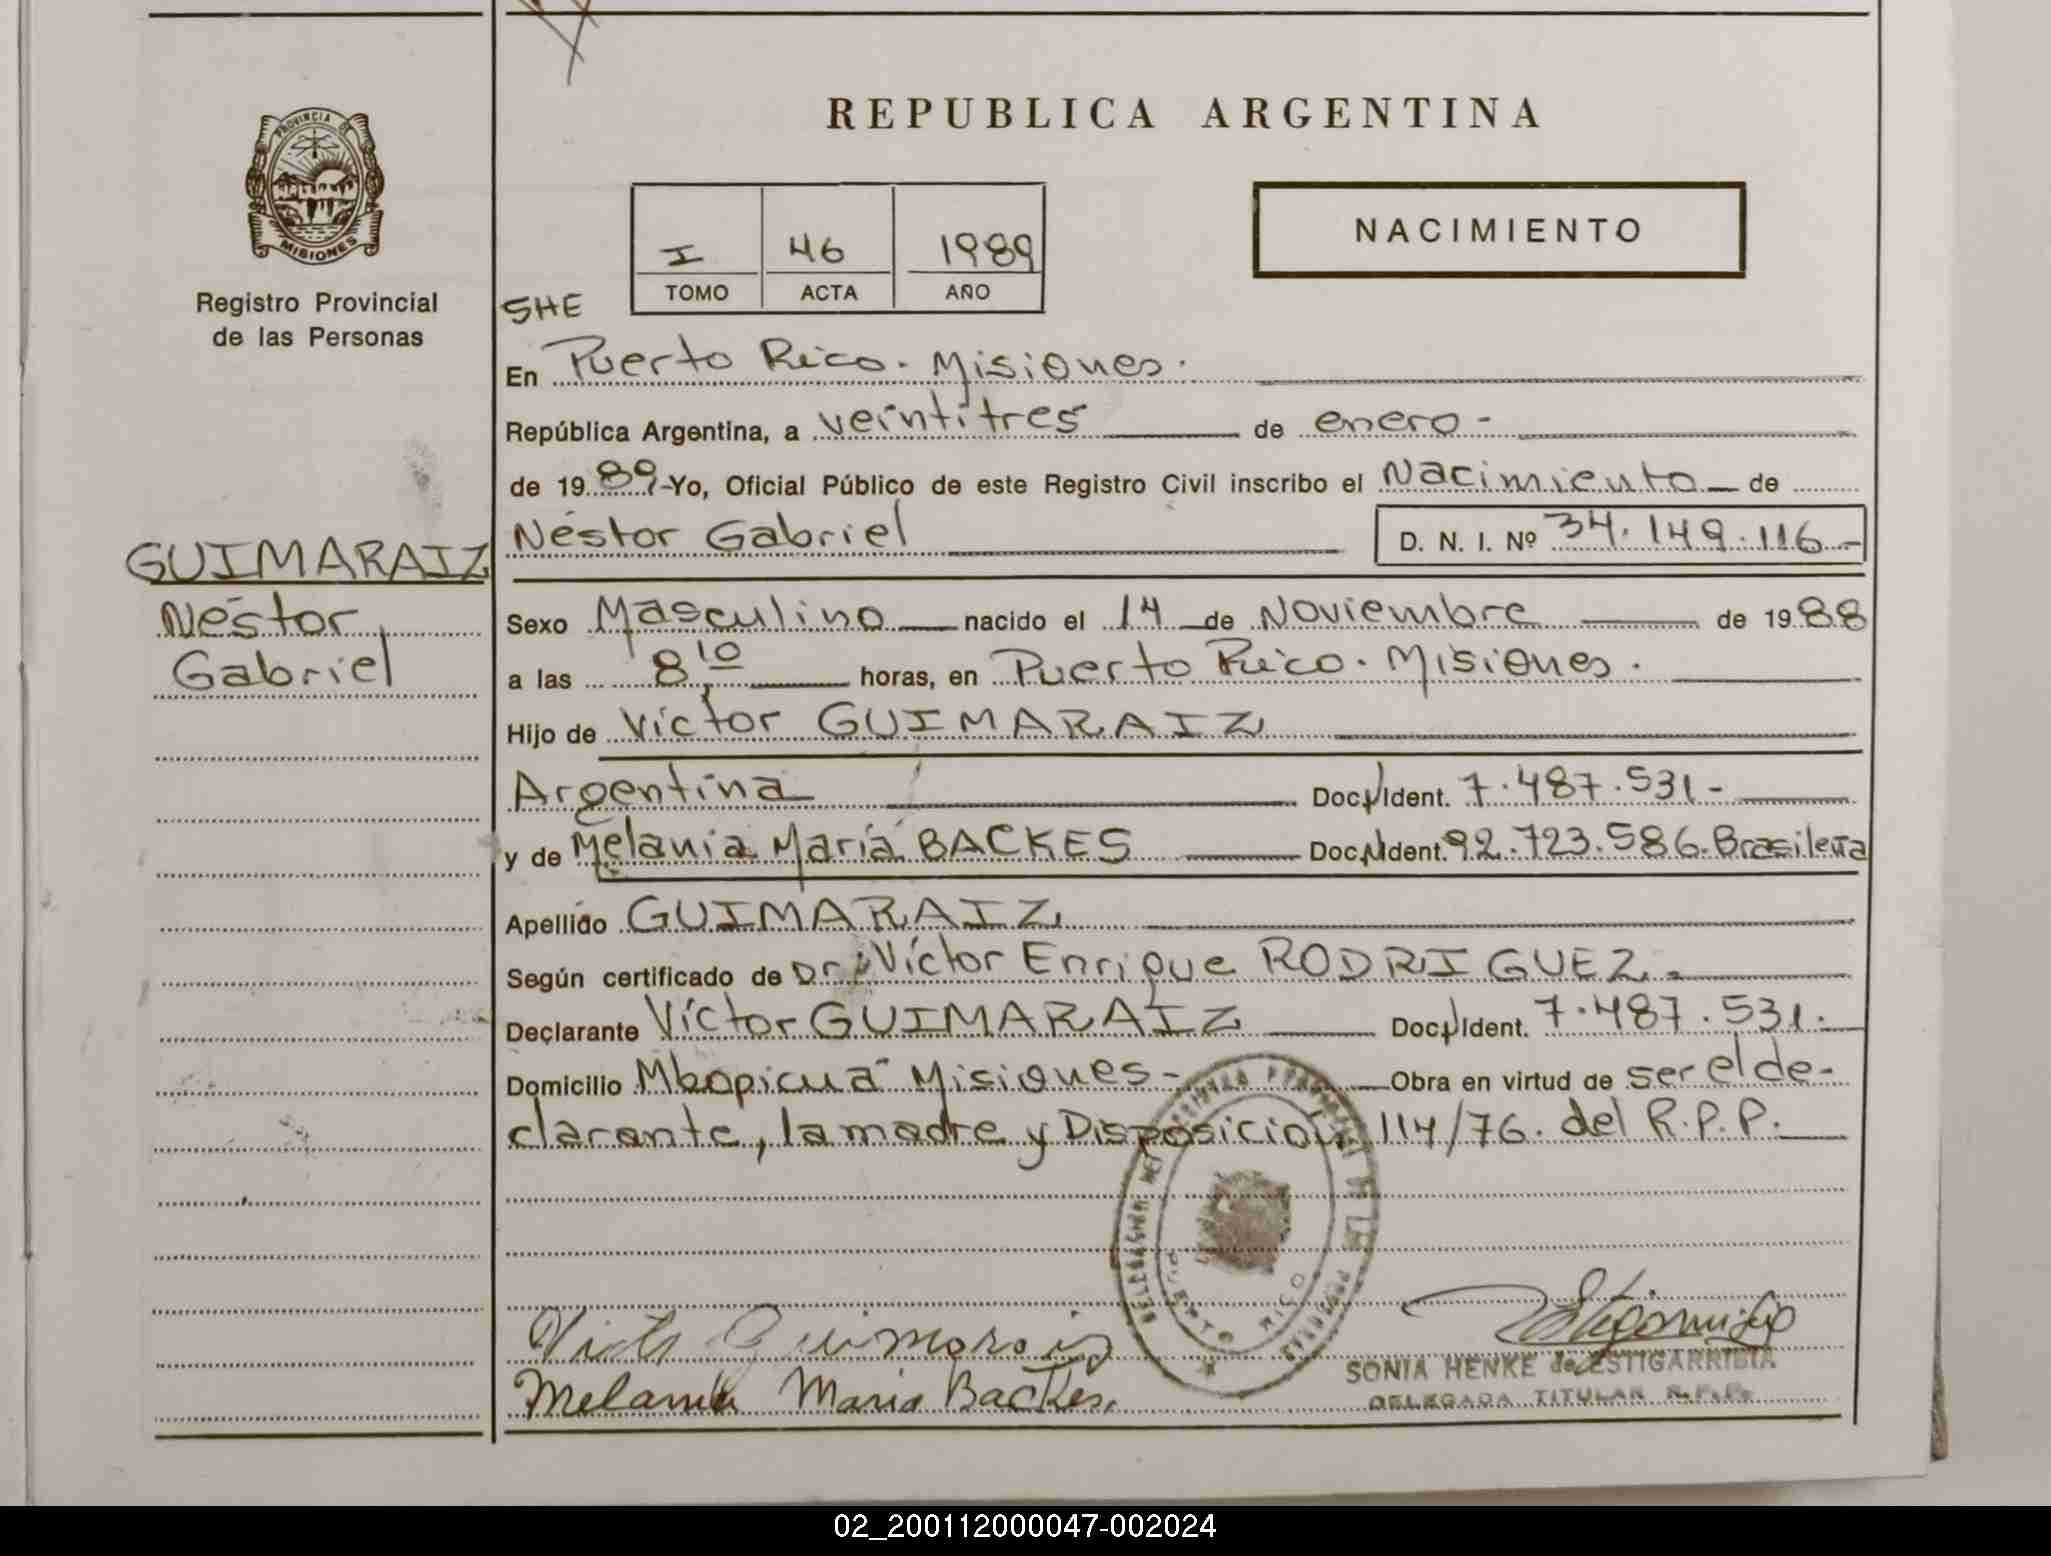 REPUBLICA ARGENTINA
PROVINCIA DE
MISIONES
Registro Provincial
de las Personas
NACIMIENTO
I 46 1989
TOMO ACTA AÑO
SHE
En Puerto Rico. Misiones.
República Argentina, a veintitres de enero-
de 1989-Yo, Oficial Público de este Registro Civil inscribo el Nacimiento de
Néstor Gabriel D. N. I. Nº 34.149.116-
GUIMARAIZ
Néstor
Gabriel
Sexo Masculino nacido el 14 de Noviembre de 1988
a las 8,10 horas, en Puerto Rico. Misiones.
Hijo de Víctor GUIMARAIZ
Argentina Doc. Ident. 7.487.531-
y de Melania María BACKES Doc. Ident. 92.723.586. Brasilera
Apellido GUIMARAIZ
Según certificado de Dr: Víctor Enrique RODRIGUEZ.
Declarante Víctor GUIMARAIZ Doc. Ident. 7.487.531.
Domicilio Mbopicuá Misiones- Obra en virtud de ser el de-
clarante, la madre y Disposición 114/76. del R.P.P.
RICO
Melania Maria Backes.
SONIA HENKE de ESTIGARRIBIA
DELEGADA TITULAR R.P.P.
02_200112000047-002024